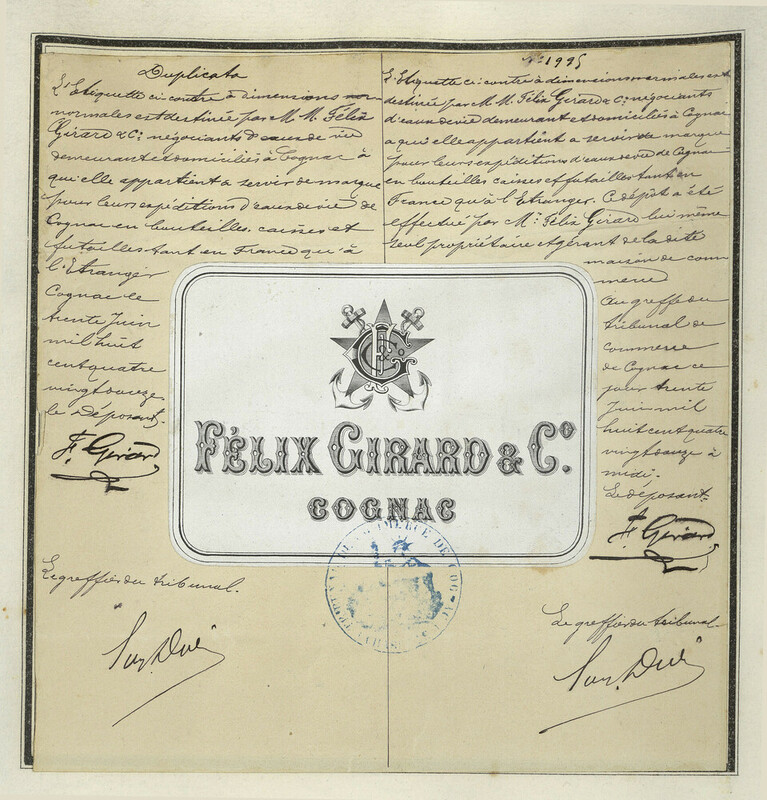 Duplicata
L'Etiquette ci contre à dimensions nor
normales est destinée par M. M. Félix
Girard & Cº négociants d'eaux de vie
demeurant et domiciliés à Cognac à
qui elle appartient a servir de marque
pour leurs expéditions d'eaux de vie de
Cognac en bouteilles, caisses et
futailles tant en France qu'à
l'Etranger
Cognac le
trente Juin
mil huit
cent quatre
vingt douze
le déposant.
F. Girard
Le greffier du tribunal.
Nº 1995
L'Etiquette ci-contre à dimensions normales est
destinée par M. M. Félix Girard & Cº négociants
d'eaux de vie demeurant et domiciliés à Cognac
a qui elle appartient a servir de marque
pour leurs expéditions d'eaux de vie de Cognac
en bouteilles caisses et futailles tant en
France qu'à l'Etranger. Ce dépôt a été
effectué par Mr. Félix Girard lui même
seul propriétaire et gérant de la dite
maison de com
merce
Au greffe du
tribunal de
commerce
de Cognac ce
jour trente
Juin mil
huit cent quatre
vingt douze à
midi.
Le déposant.
F. Girard
Le greffier du tribunal.
FÉLIX GIRARD & Cº.
COGNAC
TRIBUNAL DE COMMERCE DE COGNAC